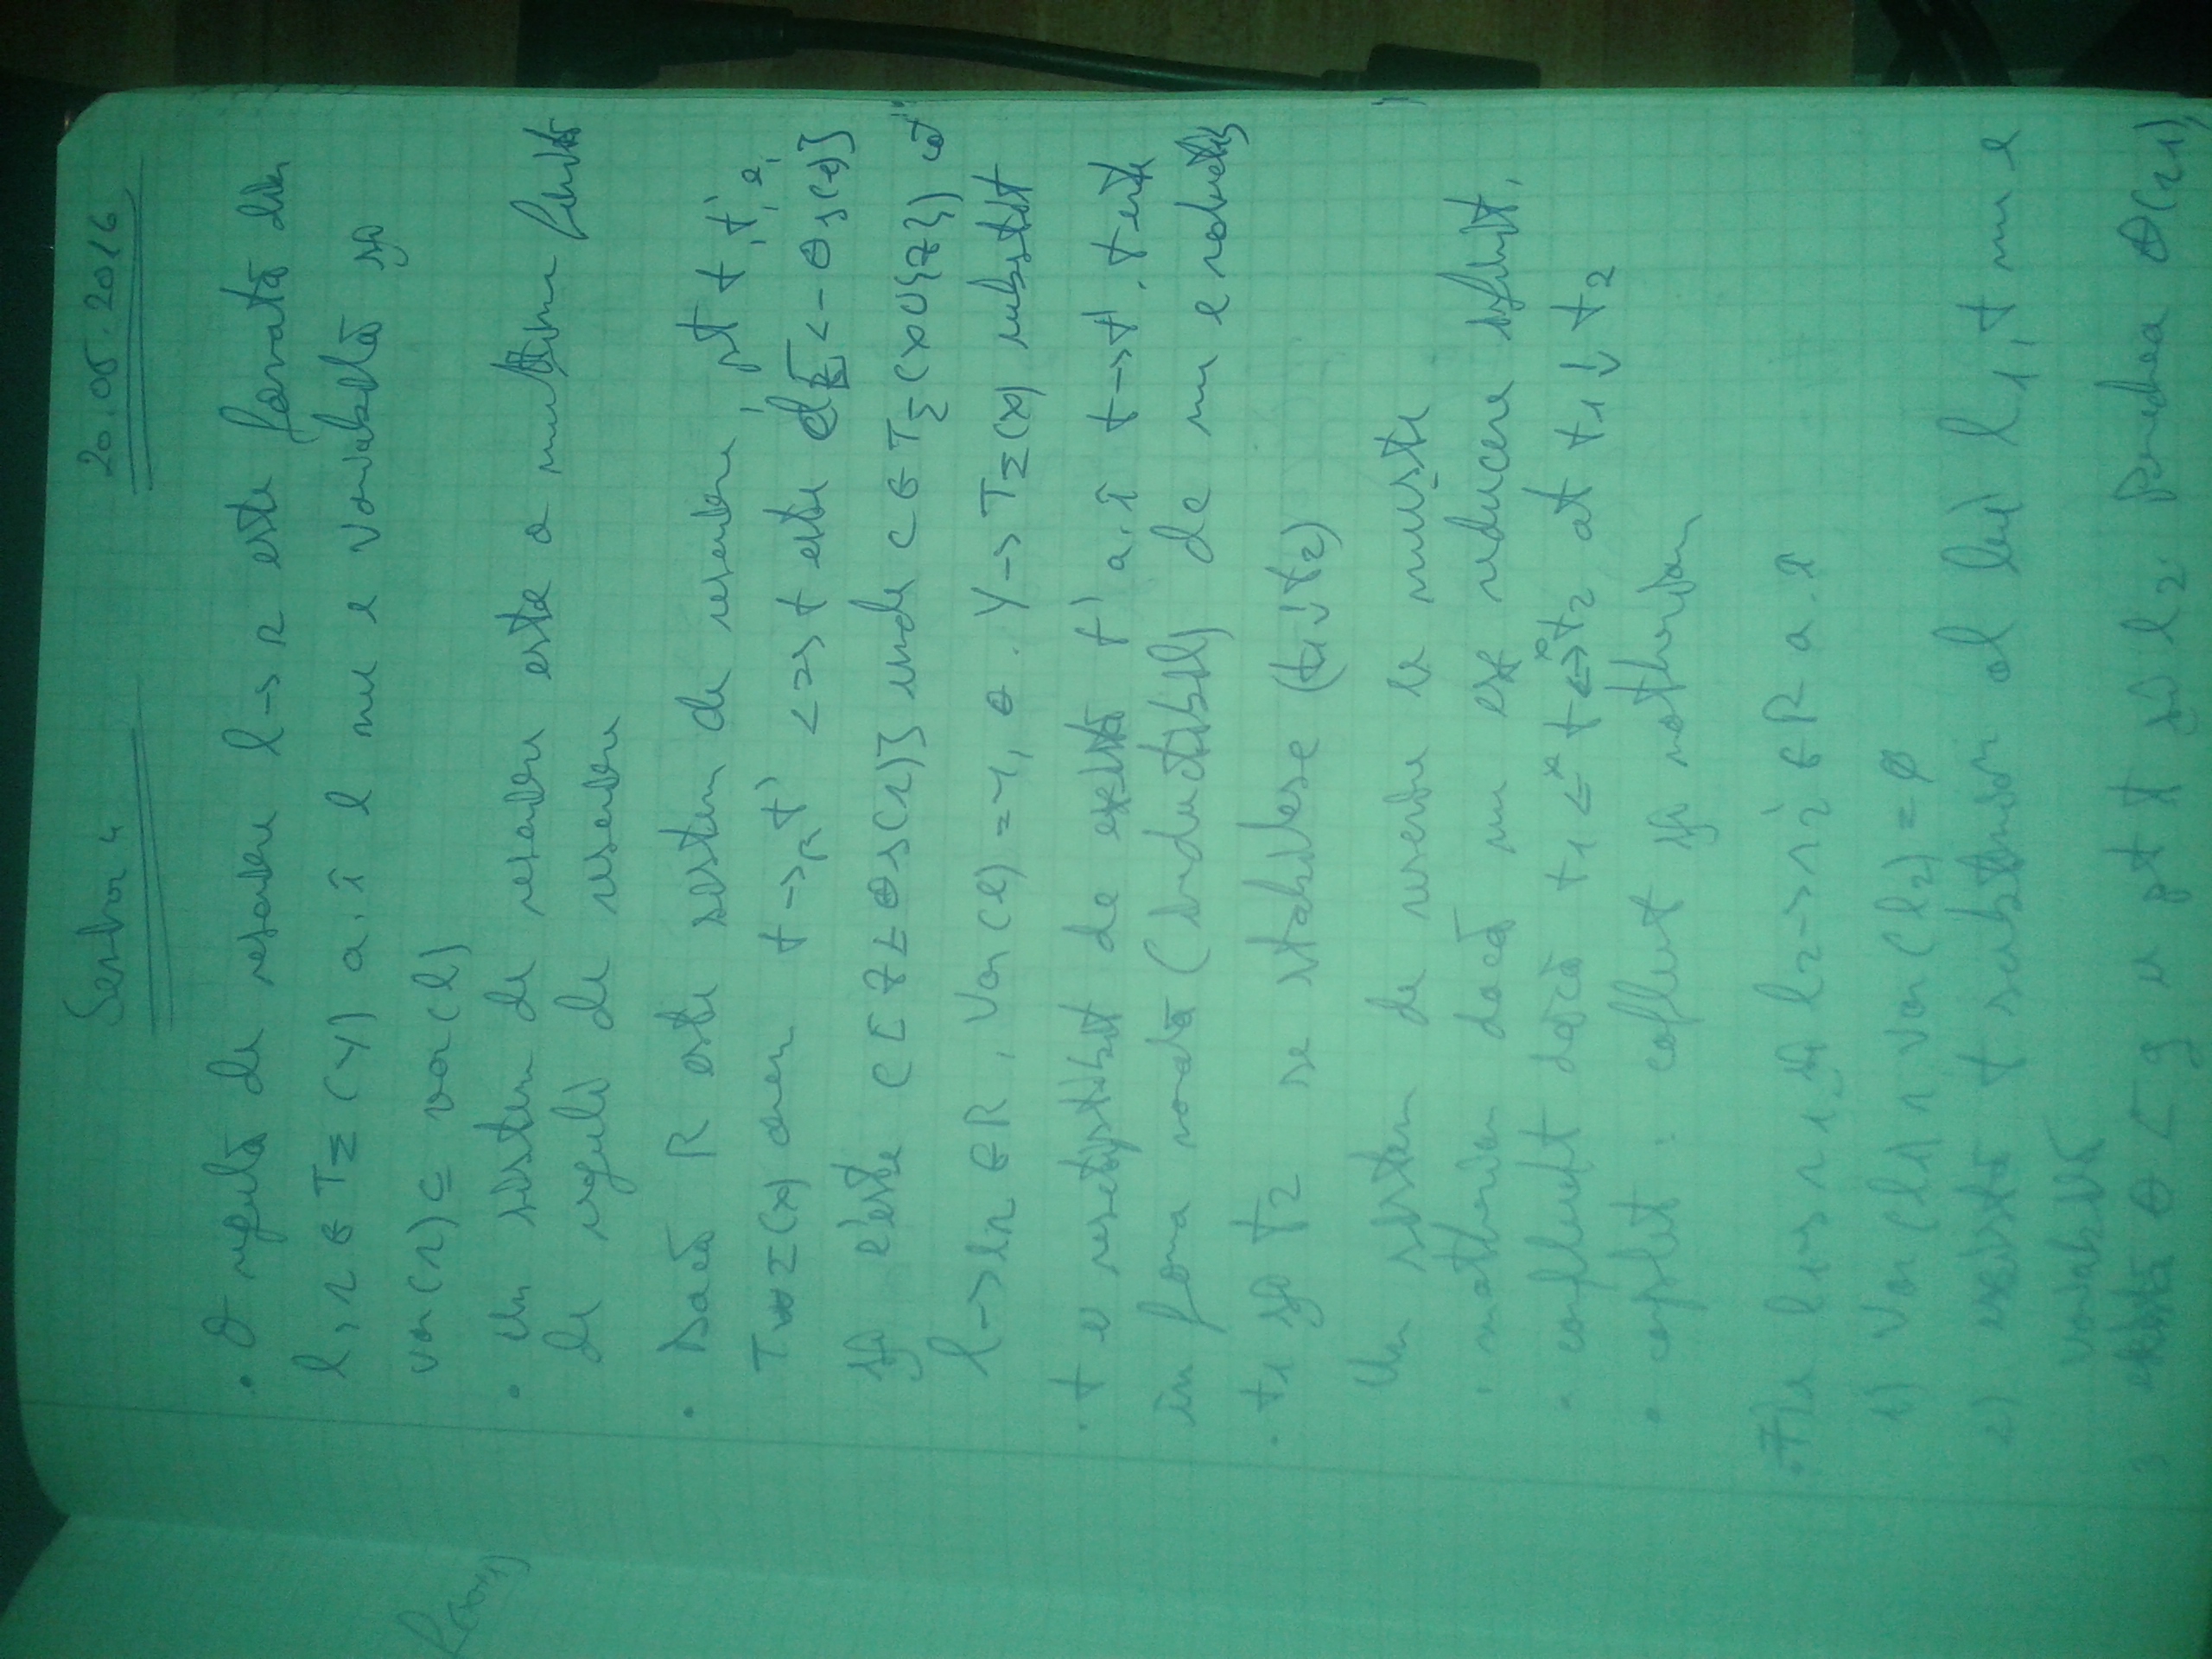 20.05.2016
. O regulă de rescriere l -> r este formată din
l, r ∈ TΣ(Y) a.î l nu e variabilă și
var(r) ⊆ var(l)
. Un sistem de rescriere este o mulțime finită
de reguli de rescriere
. Dacă R este sistem de rescriere, pt t, t' ∈
TΣ(X) avem t ->R t' <=> t este c[z <- θs(l)]
și t' este c[z ← θs(r)] unde c ∈ TΣ(X∪{z})
l -> r ∈ R, Var(l) = Y, θ . Y -> TΣ(X) substit
. t e de există t' a.î t -> t'. t este
în forma (inductibil) de nu e
. t1 și t2 se (t1 ↓ t2)
Un sistem de rescriere se numește
. noetherian dacă nu ex reducere infinit.
. confluent dacă t1 <-* t t2 at t1 ↓ t2
. complet : confluent și noetherian
. Fie l1 -> r1 și l2 -> r2 ∈ R a.î
1) Var(l1) ∩ Var(l2) = ∅
2) există t subtermen al lui l1, t nu e
variabilă
3 există θ c g u pt t și l2. Perechea θ(r1),